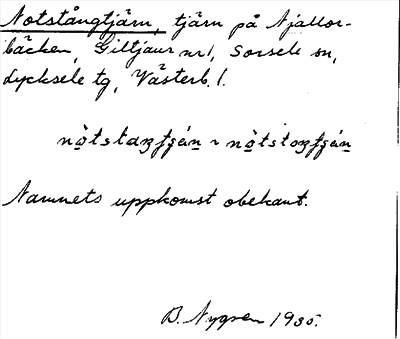 Notstångtjärn, tjärn på Njallor-
bäcken, Giltjaur nr 1, Sorsele sn,
Lycksele tg, Västerb. l.
Namnets uppkomst obekant.
B. Nygren 1935.